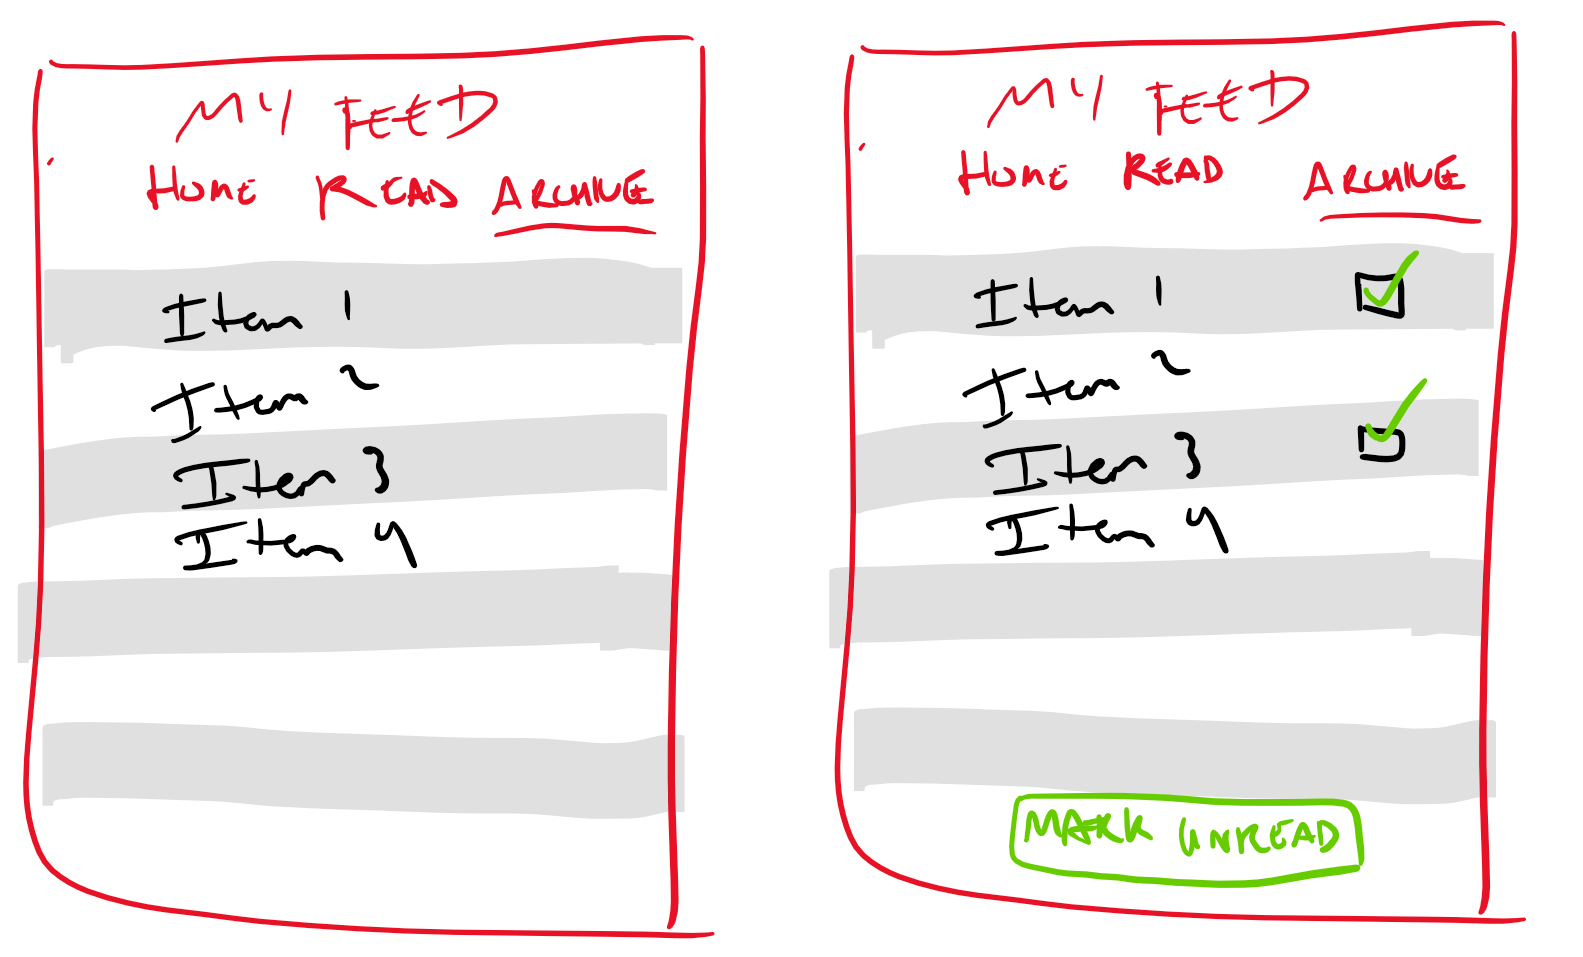 MY FEED
HOME READ ARCHIVE
Item 1
Item 2
Item 3
Item 4
MY FEED
HOME READ ARCHIVE
Item 1
Item 2
Item 3
Item 4
MARK UNREAD